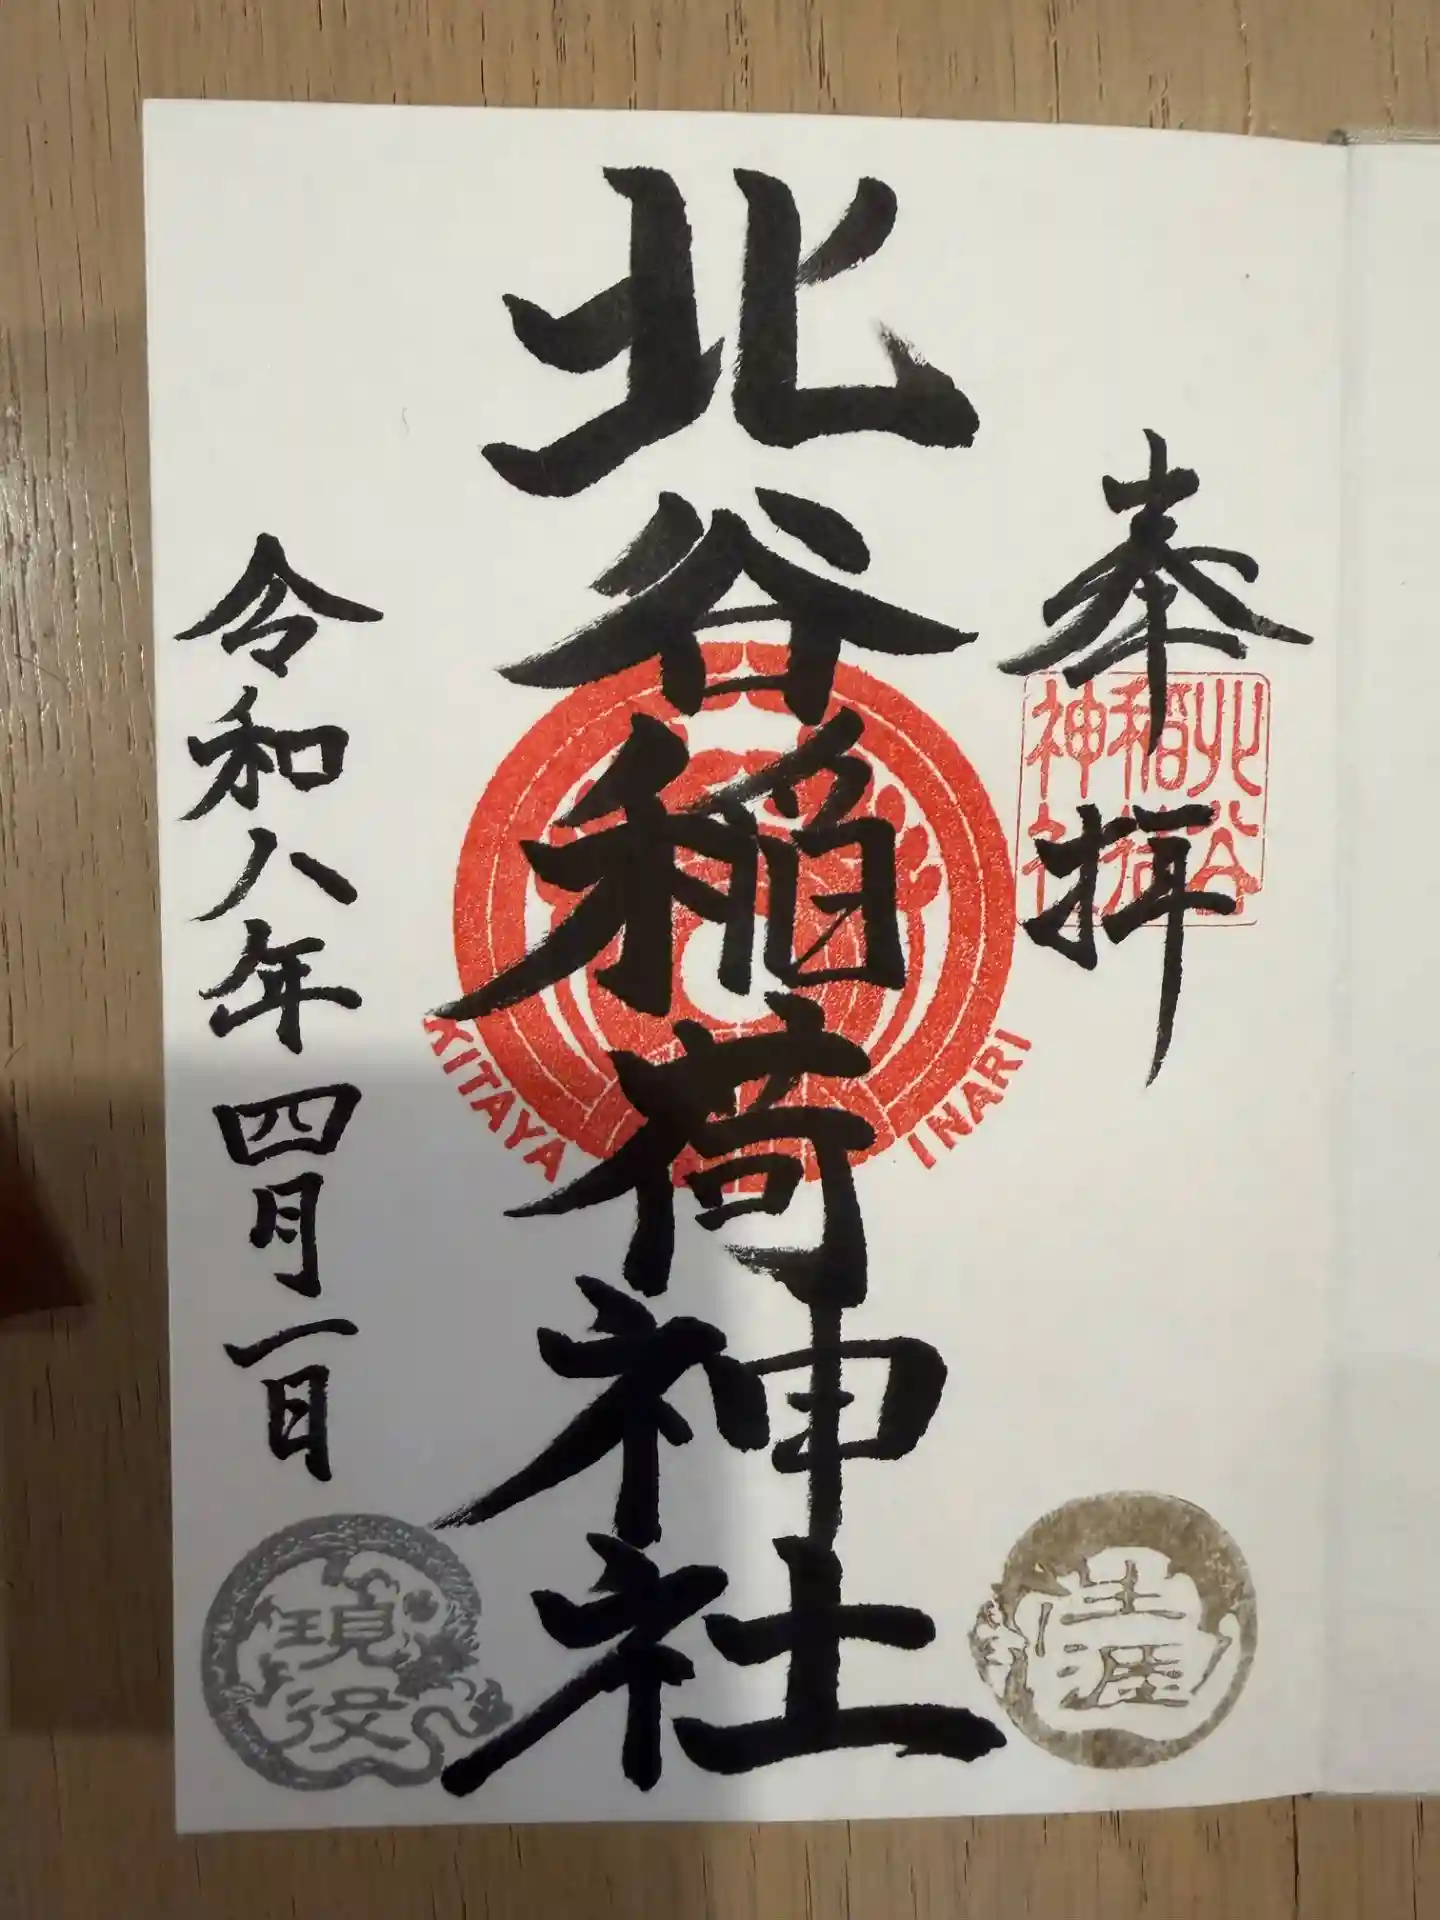 奉拝
北谷
稲荷
神社
北谷稲荷神社
KITAYA INARI
令和八年四月一日
生涯
現役